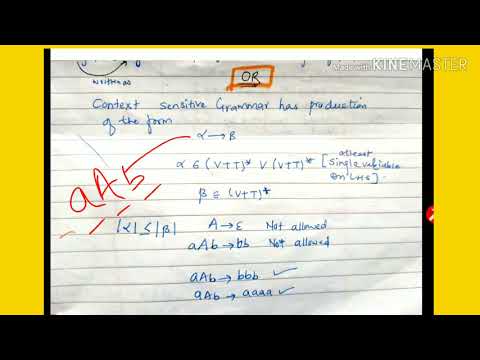 Made with KINEMASTER
written as
OR
Context sensitive Grammar has production
of the form
α → β
α ∈ (V+T)* V (V+T)* [atleast single variable on LHS].
β ∈ (V+T)+
aAb
|α| ≤ |β| A → ε Not allowed
aAb → bb Not allowed
aAb → bbb ✓
aAb → aaaa ✓